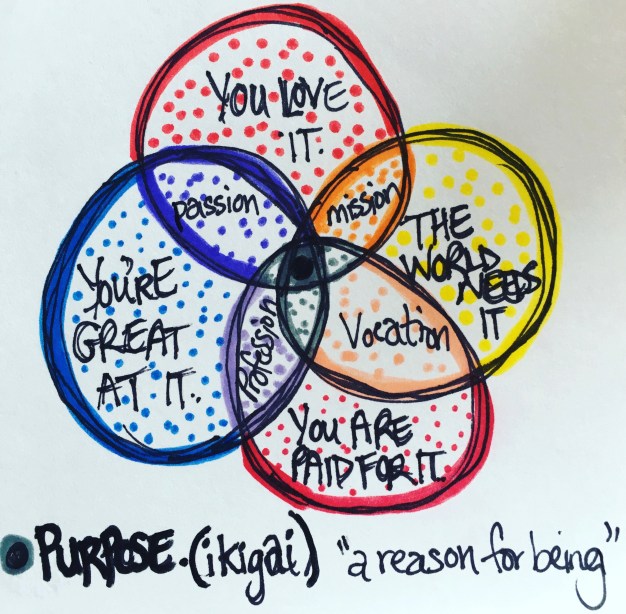 YOU LOVE
IT.
passion
mission
THE
WORLD
NEEDS
IT
YOU'RE
GREAT
AT IT.
Profession
Vocation
YOU ARE
PAID FOR IT.
PURPOSE. (ikigai) "a reason for being"